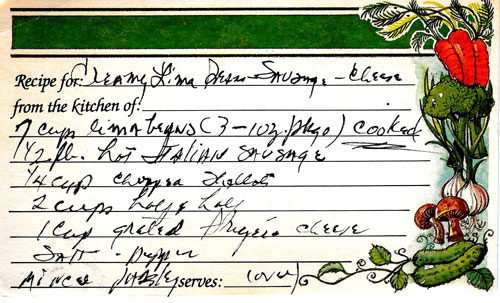 Recipe for: Creamy Lima Bean Sausage - Cheese
from the kitchen of:
7 cups lima beans (3-10z. pkgs) cooked
1/2 lb. hot ITALIAN SAUSAGE
1/4 cup chopped shallots
2 cups half & half
1 cup grated cheese
Salt - pepper
minced parsley serves: (over)